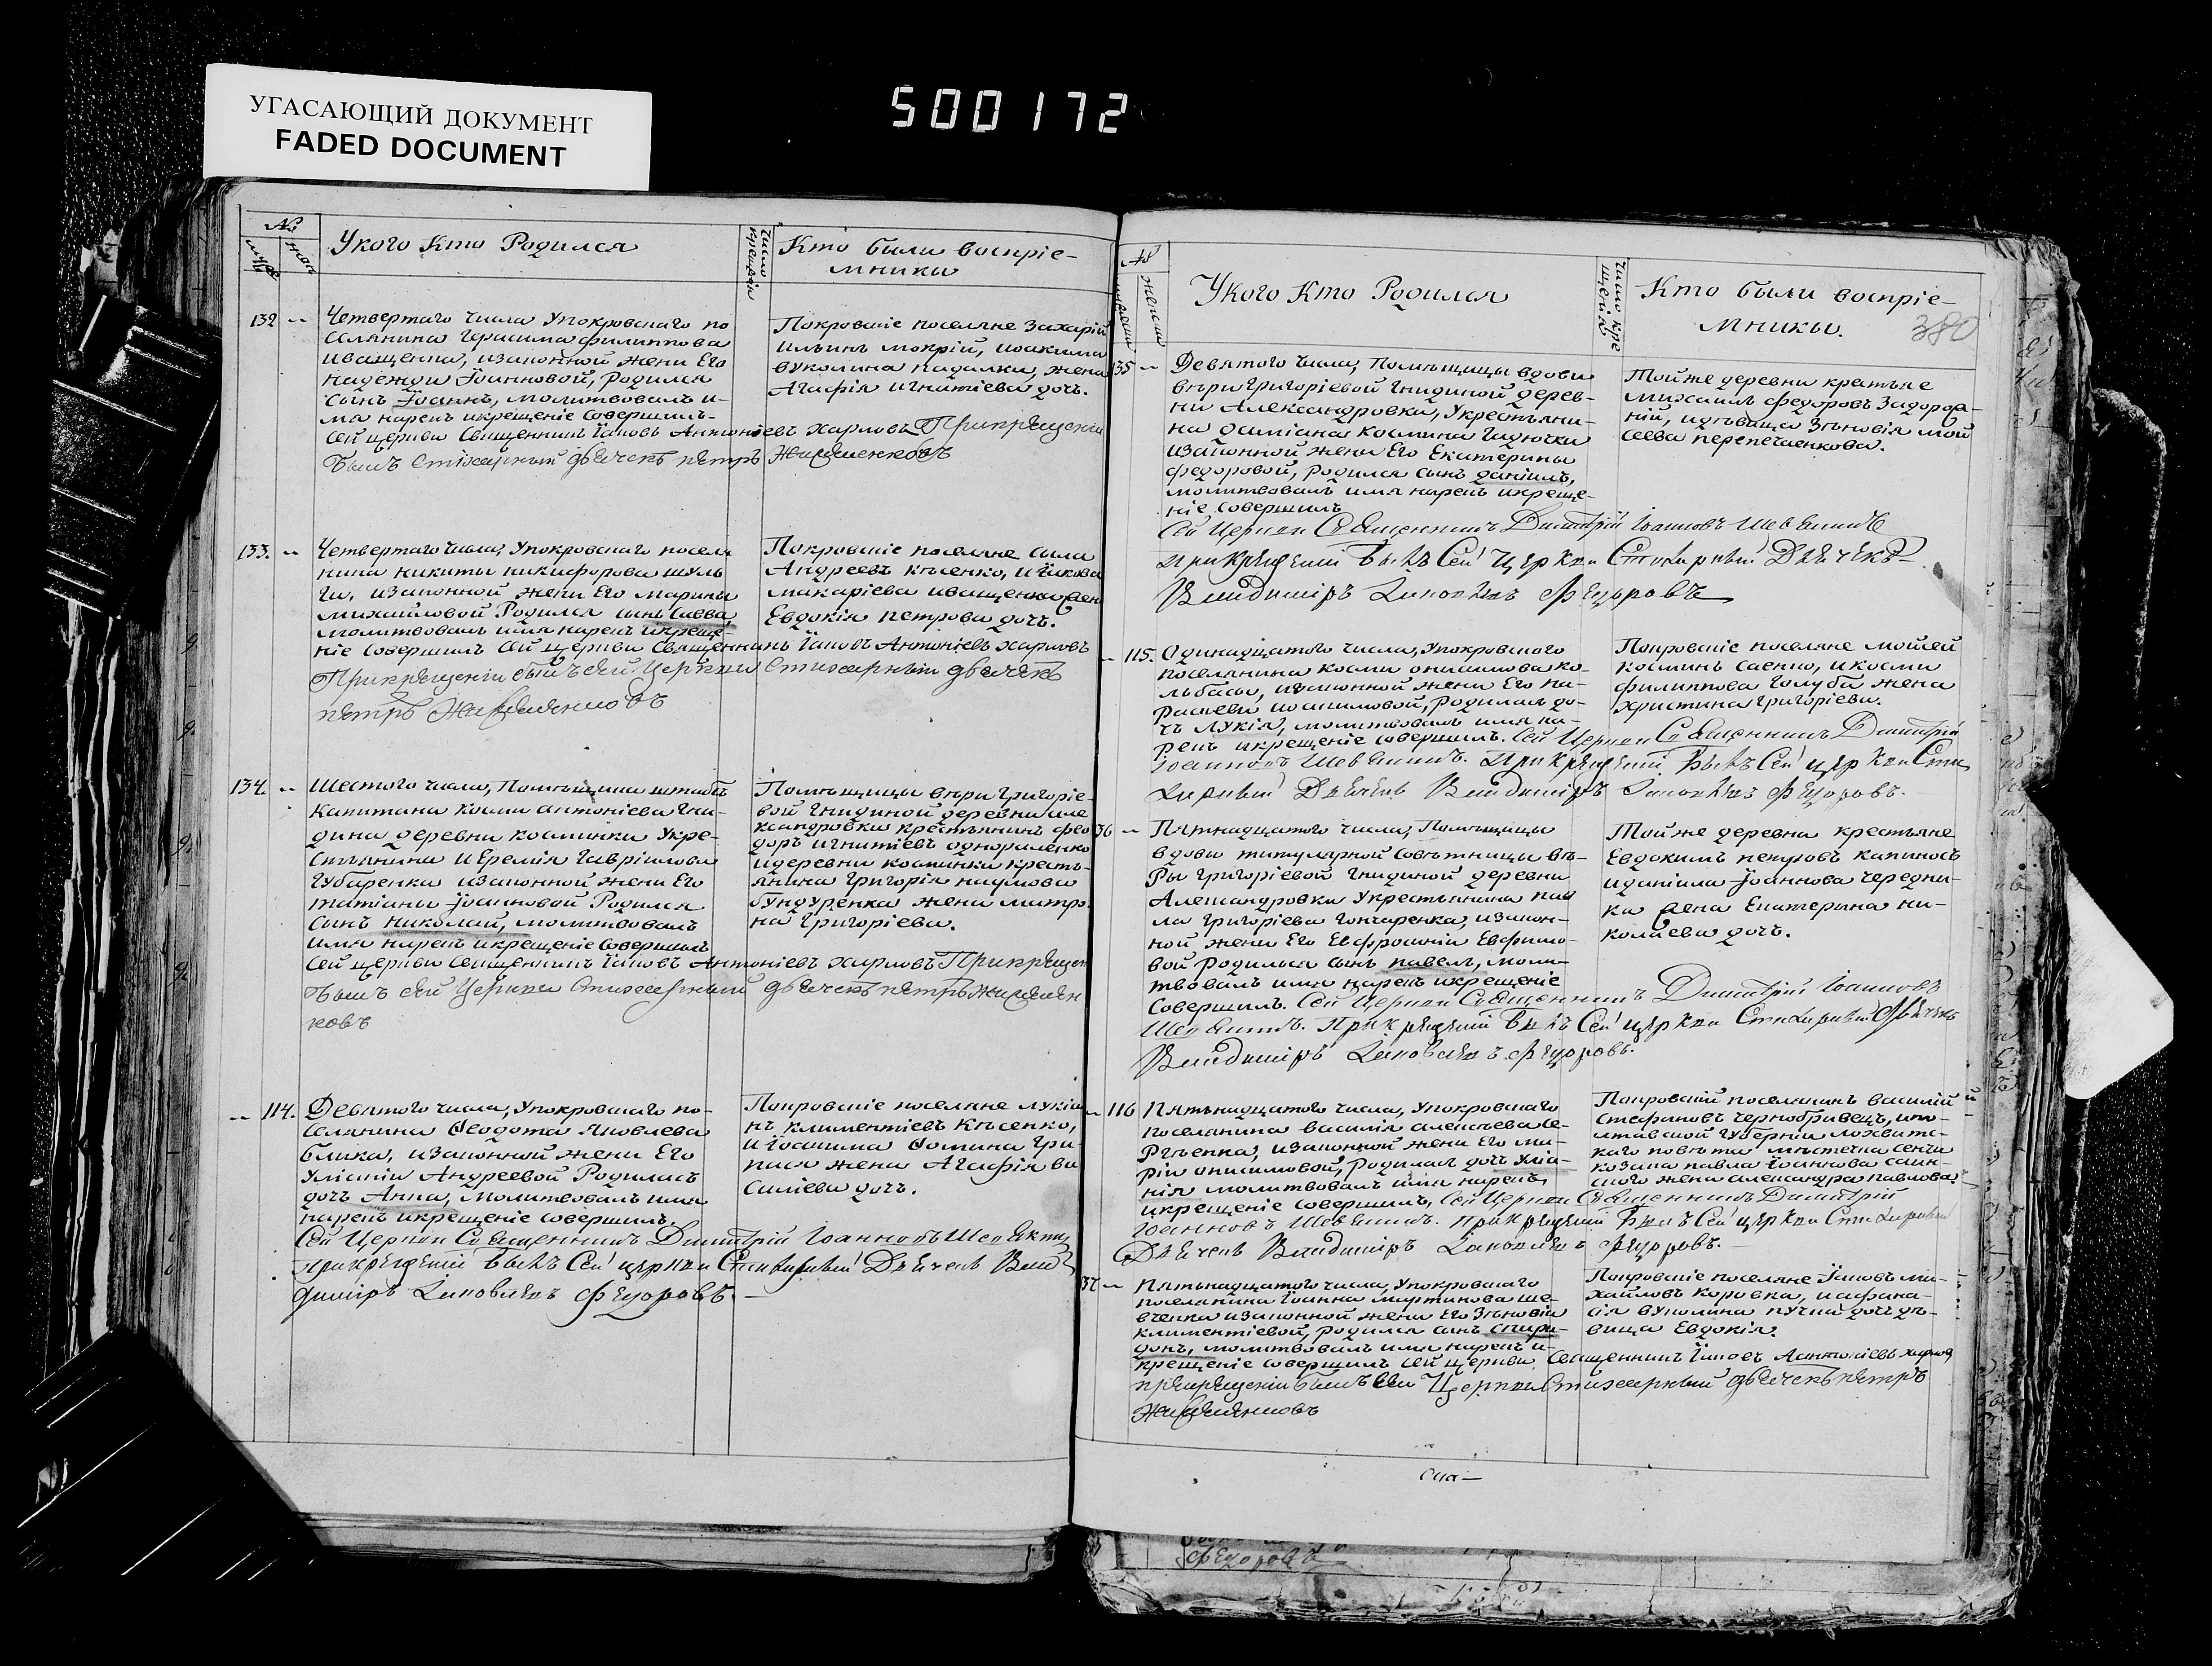 УГАСАЮЩИЙ ДОКУМЕНТ
FADED DOCUMENT
500172
№
Укого Кто Родился
Кто были воспріе-
мники
132 --
Четвертаго числа Упокровскаго по
селянина Герасима филиппова
иващенка, изаконной жени Его
надежди Іоанновой, родился
сынъ Іоаннъ, молитвовалъ и-
мя нарекъ икрещеніе совершилъ-
сей церкви Священникъ Іаковъ Антоніевъ харловъ Прикрещеніи
былъ стихарный дьячекъ петръ
Покровскіе поселяне Захарій
ильинъ мокрій, иоакима
вуколина падалки, жена
Агафія игнатіева дочь.
133. --
Четвертаго числа, Упокровскаго поселя
нина никиты никифорова шуль
ги, изаконной жени Его Марины
михайловой Родился сынъ Савва,
молитвовалъ имя нарекъ икреще-
ніе совершилъ сей церкви Священникъ Іаковъ Антоніевъ харловъ
Прикрещеніи былъ сей Церкви Стихарный дьячекъ
петръ
Покровскіе поселяне
Андреевъ Кѣсенко, иІакова
макаріева иващенка жен
Евдокія петрова дочь.
134. --
Шестого числа, Помѣщика штабсъ
Капитана Косми антоніева Гни-
дина деревни косминки Укре-
стьянина иЕремія Гавріилова
Губаренка изаконной жени Его
татіаны Іоанновой Родился
Сынъ николай, молитвовалъ
имя нарекъ икрещеніе совершилъ
сей церкви священникъ Іаковъ Антоніевъ харловъ Прикрещен
былъ сей Церкви Стихарный дьячекъ петръ
ковъ
Помѣщицы вѣри Григоріе-
вой Гнидиной деревни але
ксандровки крестьянинъ фео
доръ игнатіевъ однораленко
идеревни косминки кресть-
янина Григорія наумова
бундуренка жена матро
на Григоріева.
-- 114.
Девятого числа, Упокровскаго по-
селянина Феодота Яковлева
блика, изаконной жени Его
Уліаніи Андреевой Родилась
дочь Анна, молитвовалъ имя
нарекъ икрещеніе совершилъ.
Сей Церкви Священникъ Димитрій Іоанновъ
прикрещеніи былъ Сей церкви Стихарный Дьячекъ Влад
диміръ Іаковлевъ Федоровъ.
Покровскіе поселяне лукія
нъ климентіевъ Кѣсенко,
иІоакима Фомина Гри-
жена Агафія ва
силіева дочь.
№
Укого Кто Родился
Число кре
щенія
Кто были воспріе-
мники.
380
135 --
Девятого числа, Помѣщицы вдови
вѣри Григоріевой Гнидиной дерев-
ни Александровка, Укрестьяни-
на даміана космина Гадючки
изаконной жени Его Екатерины
федоровой, родился сынъ даніилъ,
молитвовалъ имя нарекъ икреще-
ніе совершилъ
Сей Церкви Священникъ Димитрій Іоанновъ
прикрещеніи былъ Сей Церкви Стихарный Дьячекъ
Владиміръ Іаковлевъ Федоровъ
Тойже деревни крестьяне
михаилъ федоровъ Задорож-
ній, идѣвица Зѣновія мой
сеева перепечаенкова.
-- 115.
Одинадцатого числа, Упокровского
поселянина косми онисимова ко-
льбасы, изаконной жени Его па-
раскеви иоакимовой, родилась до-
чь Лукія, молитвовалъ имя на-
рекъ икрещеніе совершилъ. Сей Церкви Священникъ Димитрій
Іоанновъ прикрещеніи былъ Сей церкви Сти
харный Дьячекъ Владиміръ Іаковлевъ Федоровъ.
Покровскіе поселяне мойсей
косминъ саенко, икосми
филиппова голуба жена
христина григоріева.
136 --
Пятнадцатого числа, Помѣщицы
вдови титулярной совѣтницы вѣ-
ры Григоріевой Гнидиной деревни
Александровки Укрестьянина пав
ла Григоріева Гончаренка, изакон-
ной жени Его Евфросиніи Евфимо-
вой родился сынъ павелъ, моли-
твовалъ имя нарекъ икрещеніе
совершилъ. Сей Церкви Священникъ Димитрій Іоанновъ
Прикрещеніи былъ Сей церкви Стихарный Дьячекъ
Владиміръ Іаковлевъ Федоровъ.
Тойже деревни крестьяне
Евдокимъ петровъ капиносъ
иданіила Іоаннова чередни-
ка жена Екатерина ни-
колаева дочь.
-- 116
Пятьнадцатого числа, Упокровскаго
поселянина василія алексѣева се-
ргѣенка, изаконной жени Его ма-
ріи онисимовой, родилась дочь Уліа-
нія молитвовалъ имя нарекъ
икрещеніе совершилъ, Сей Церкви Священникъ Димитрій
Іоанновъ прикрещеніи былъ Сей церкви Стихарный
Дьячекъ Владиміръ Іаковлевъ Федоровъ.
Покровскій поселянинъ василій
Стефановъ чернобривецъ, ипо-
лтавской Губерніи лохвитс-
каго повѣта мѣстечка сенчи
козака павла Іоаннова саин-
ского жена александра павлова
137 --
Пятьнадцатого числа, Упокровскаго
поселянина Іоанна мартинова ше-
вченка изаконной жени Его Зѣновіи
климентіевой, родился сынъ спири-
донъ, молитвовалъ имя нарекъ и-
крещеніе совершилъ сей церкви Священникъ Іаковъ Антоніевъ харлов
прикрещеніи былъ сей Церкви Стихарный дьячекъ петръ
Покровскіе поселяне Іаковъ ми-
хайловъ коровка, иафана-
сія вуколина пучки дочь дѣ-
вица Евдокія.
Федоровъ